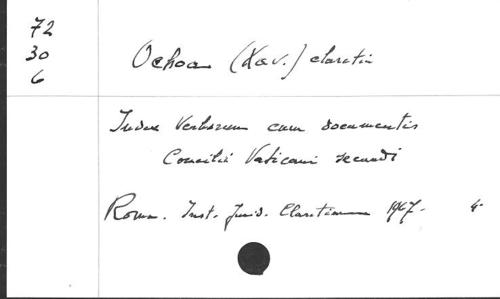 72
30
6
Ochoa (Xav.) claretin
Index Verborum cum documentis
Concilii Vaticani secundi
Roma. Inst. Jurid. Claretianum 1967. 4°